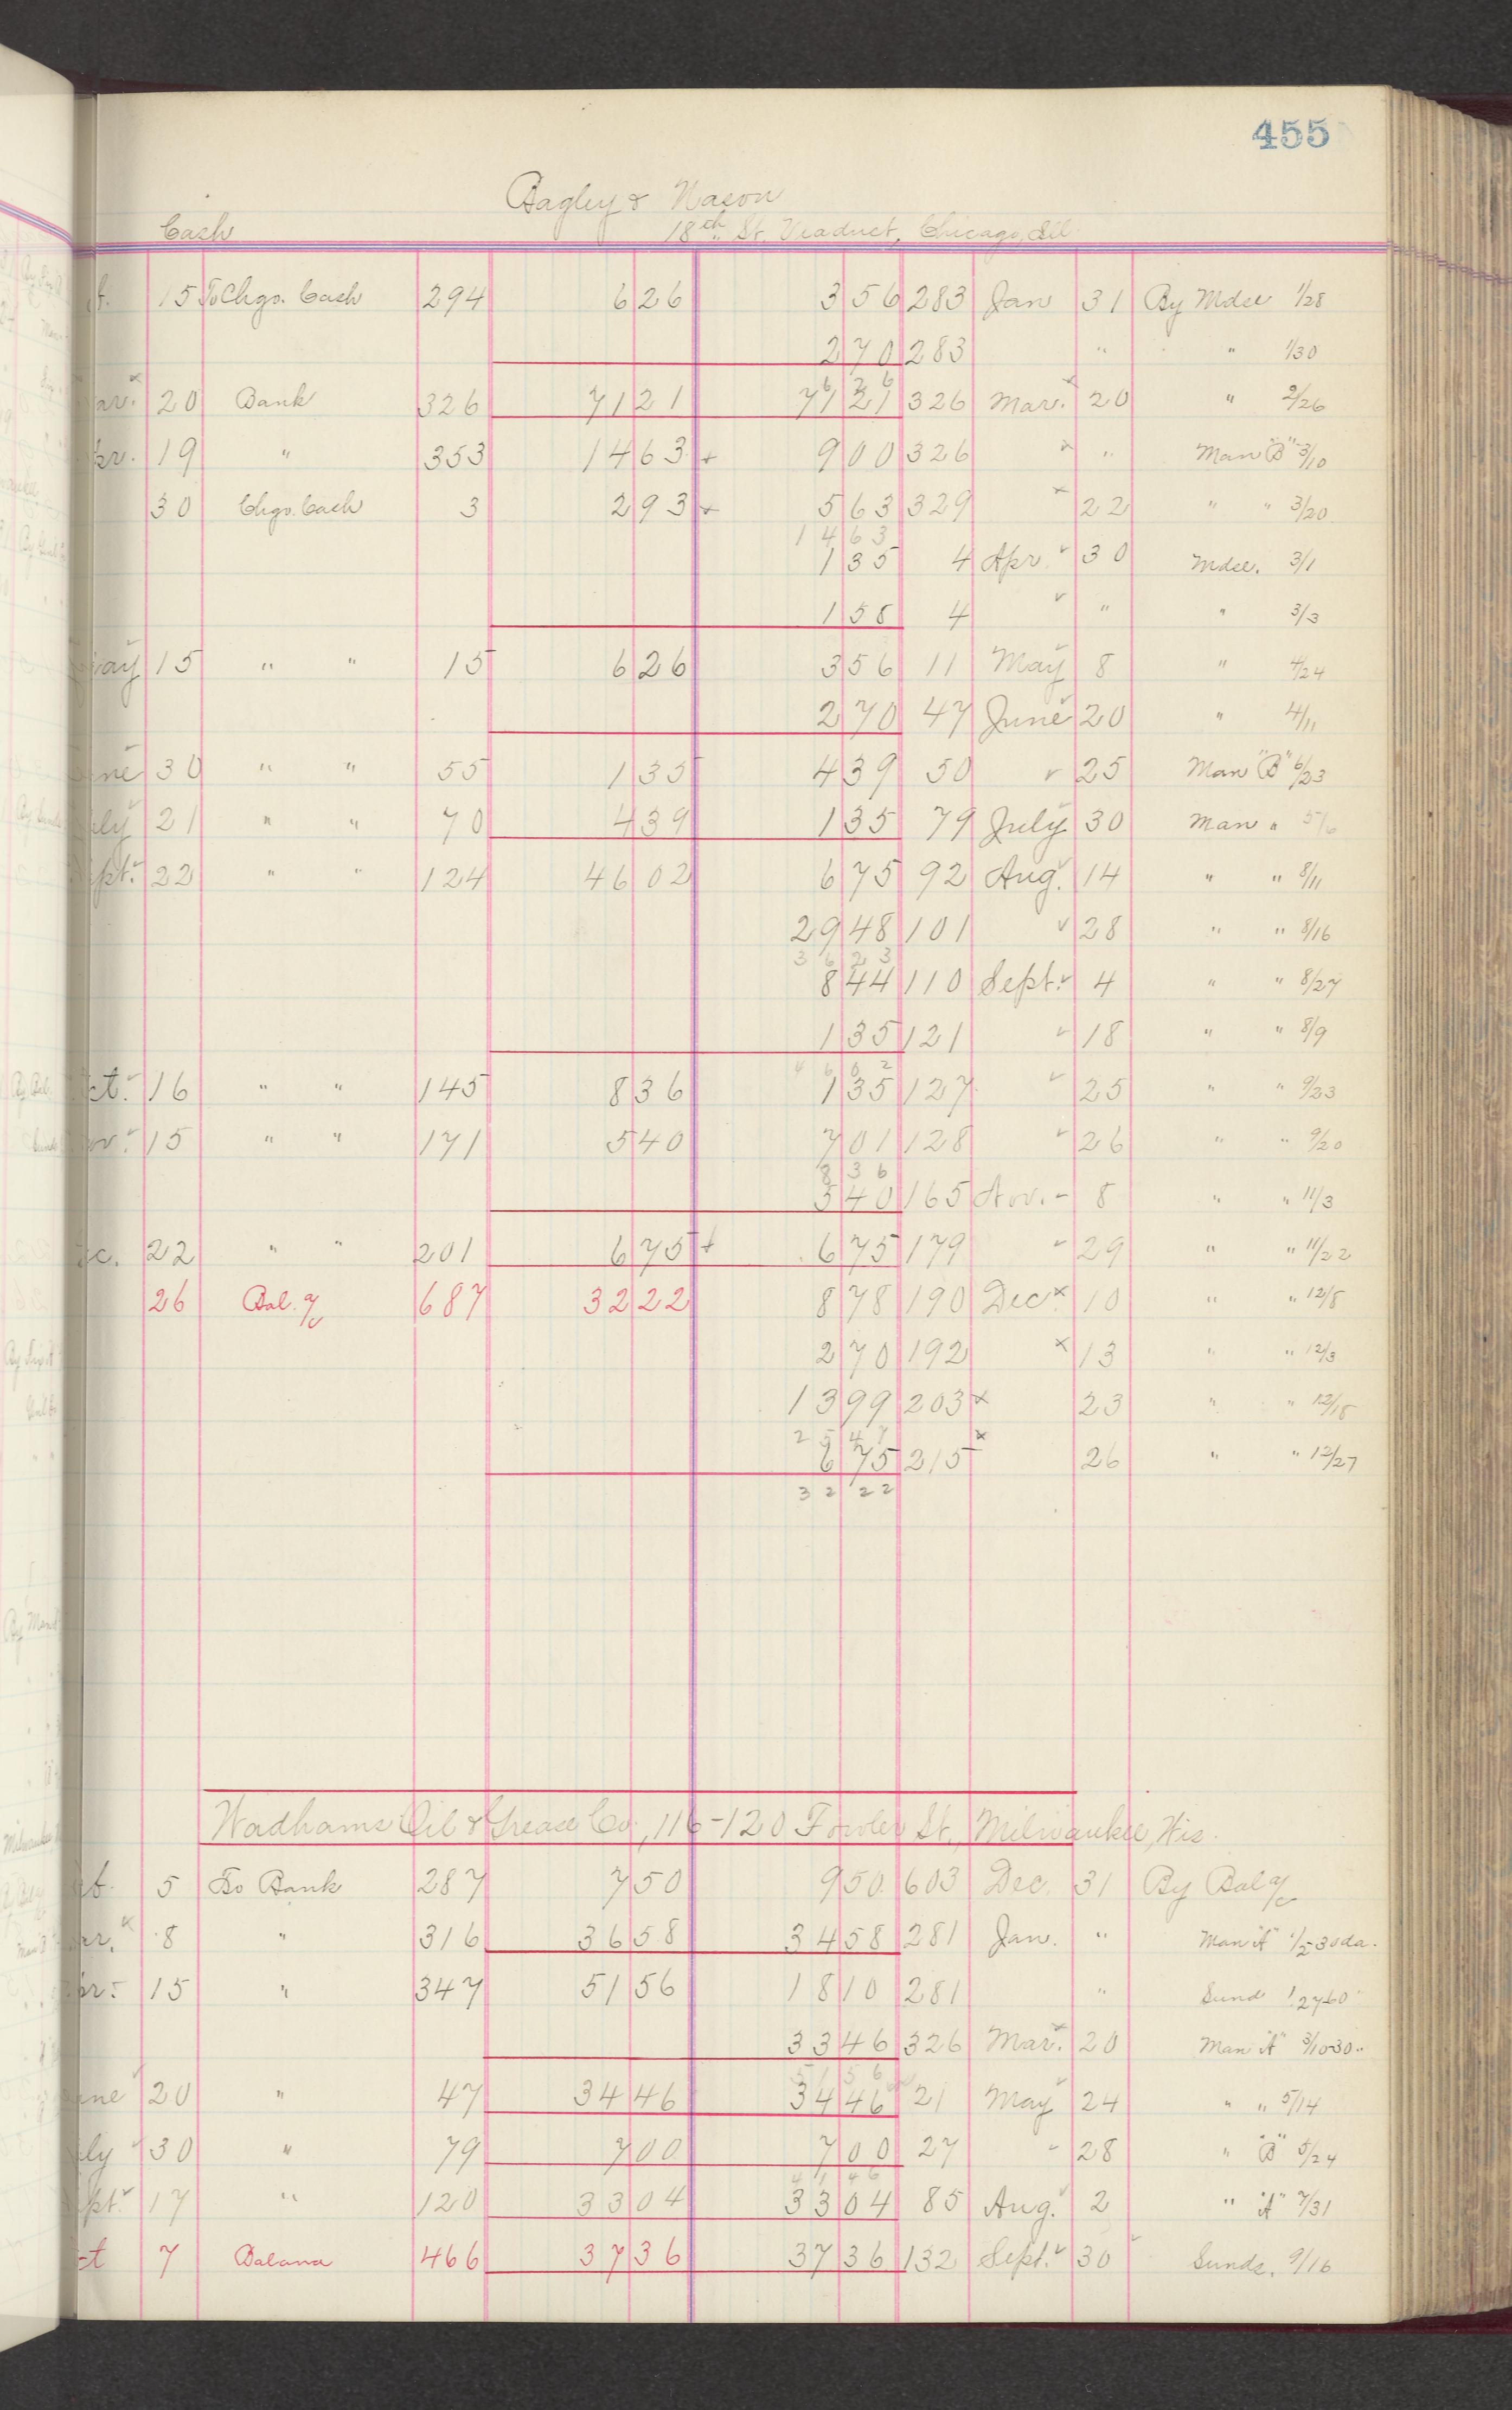 455
Bagley & Nason
Cash 18th St. Viaduct, Chicago, Ill.
15 To Chgo. Cash 294 6 26 3 56 283 Jan 31 By Mdse 1/28
2 70 283 " " 1/30
6 26
ar. x 20 Bank 326 71 21 71 21 326 Mar. x 20 " 2/26
pr. 19 " 353 14 63 x 9 00 326 " Man "B" 3/10
30 Chgo. Cash 3 2 93 x 5 63 329 x 22 " " 3/20
14 63
1 35 4 Apr. ✓ 30 Mdse. 3/1
1 58 4 ✓ " " 3/3
ay 15 " " 15 6 26 3 56 11 May 8 " 4/24
2 70 47 June 20 " 4/11
ne 30 " " 55 1 35 4 39 50 ✓ 25 Man "B" 6/23
ly 21 " " 70 4 39 1 35 79 July 30 Man " 5/6
pt. 22 " " 124 46 02 6 75 92 Aug. 14 " " 8/11
29 48 101 ✓ 28 " " 8/16
36 23
8 44 110 Sept. ✓ 4 " " 8/27
1 35 121 ✓ 18 " " 8/9
46 02
ct. 16 " " 145 8 36 1 35 127 ✓ 25 " " 9/23
ov. 15 " " 171 5 40 7 01 128 ✓ 26 " " 9/20
8 36
5 40 165 Nov. 8 " " 11/3
c. 22 " " 201 6 75 x 6 75 179 ✓ 29 " " 11/22
26 Bal. a/c 687 32 22 8 78 190 Dec. x 10 " " 12/8
2 70 192 x 13 " " 12/3
13 99 203 x 23 " " 12/18
25 47
6 75 215 x 26 " " 12/27
32 22
Wadhams Oil & Grease Co., 116-120 Fowler St., Milwaukee, Wis.
b. 5 To Bank 287 7 50 9 50 603 Dec. 31 By Bal a/c
ar. x 8 " 316 36 58 34 58 281 Jan. " Man "A" 1/2-30da.
pr. 15 " 347 51 56 18 10 281 " Sund 1/27-60"
33 46 326 Mar. x 20 Man "A" 3/10-30"
51 56
ne 20 " 47 34 46 34 46 21 May 24 " " 5/14
ly 30 " 79 7 00 7 00 27 28 " "B" 5/24
41 46
pt. 17 " 120 33 04 33 04 85 Aug. 2 " "A" 7/31
ct 7 Balance 466 37 36 37 36 132 Sept. ✓ 30 Sunds. 9/16